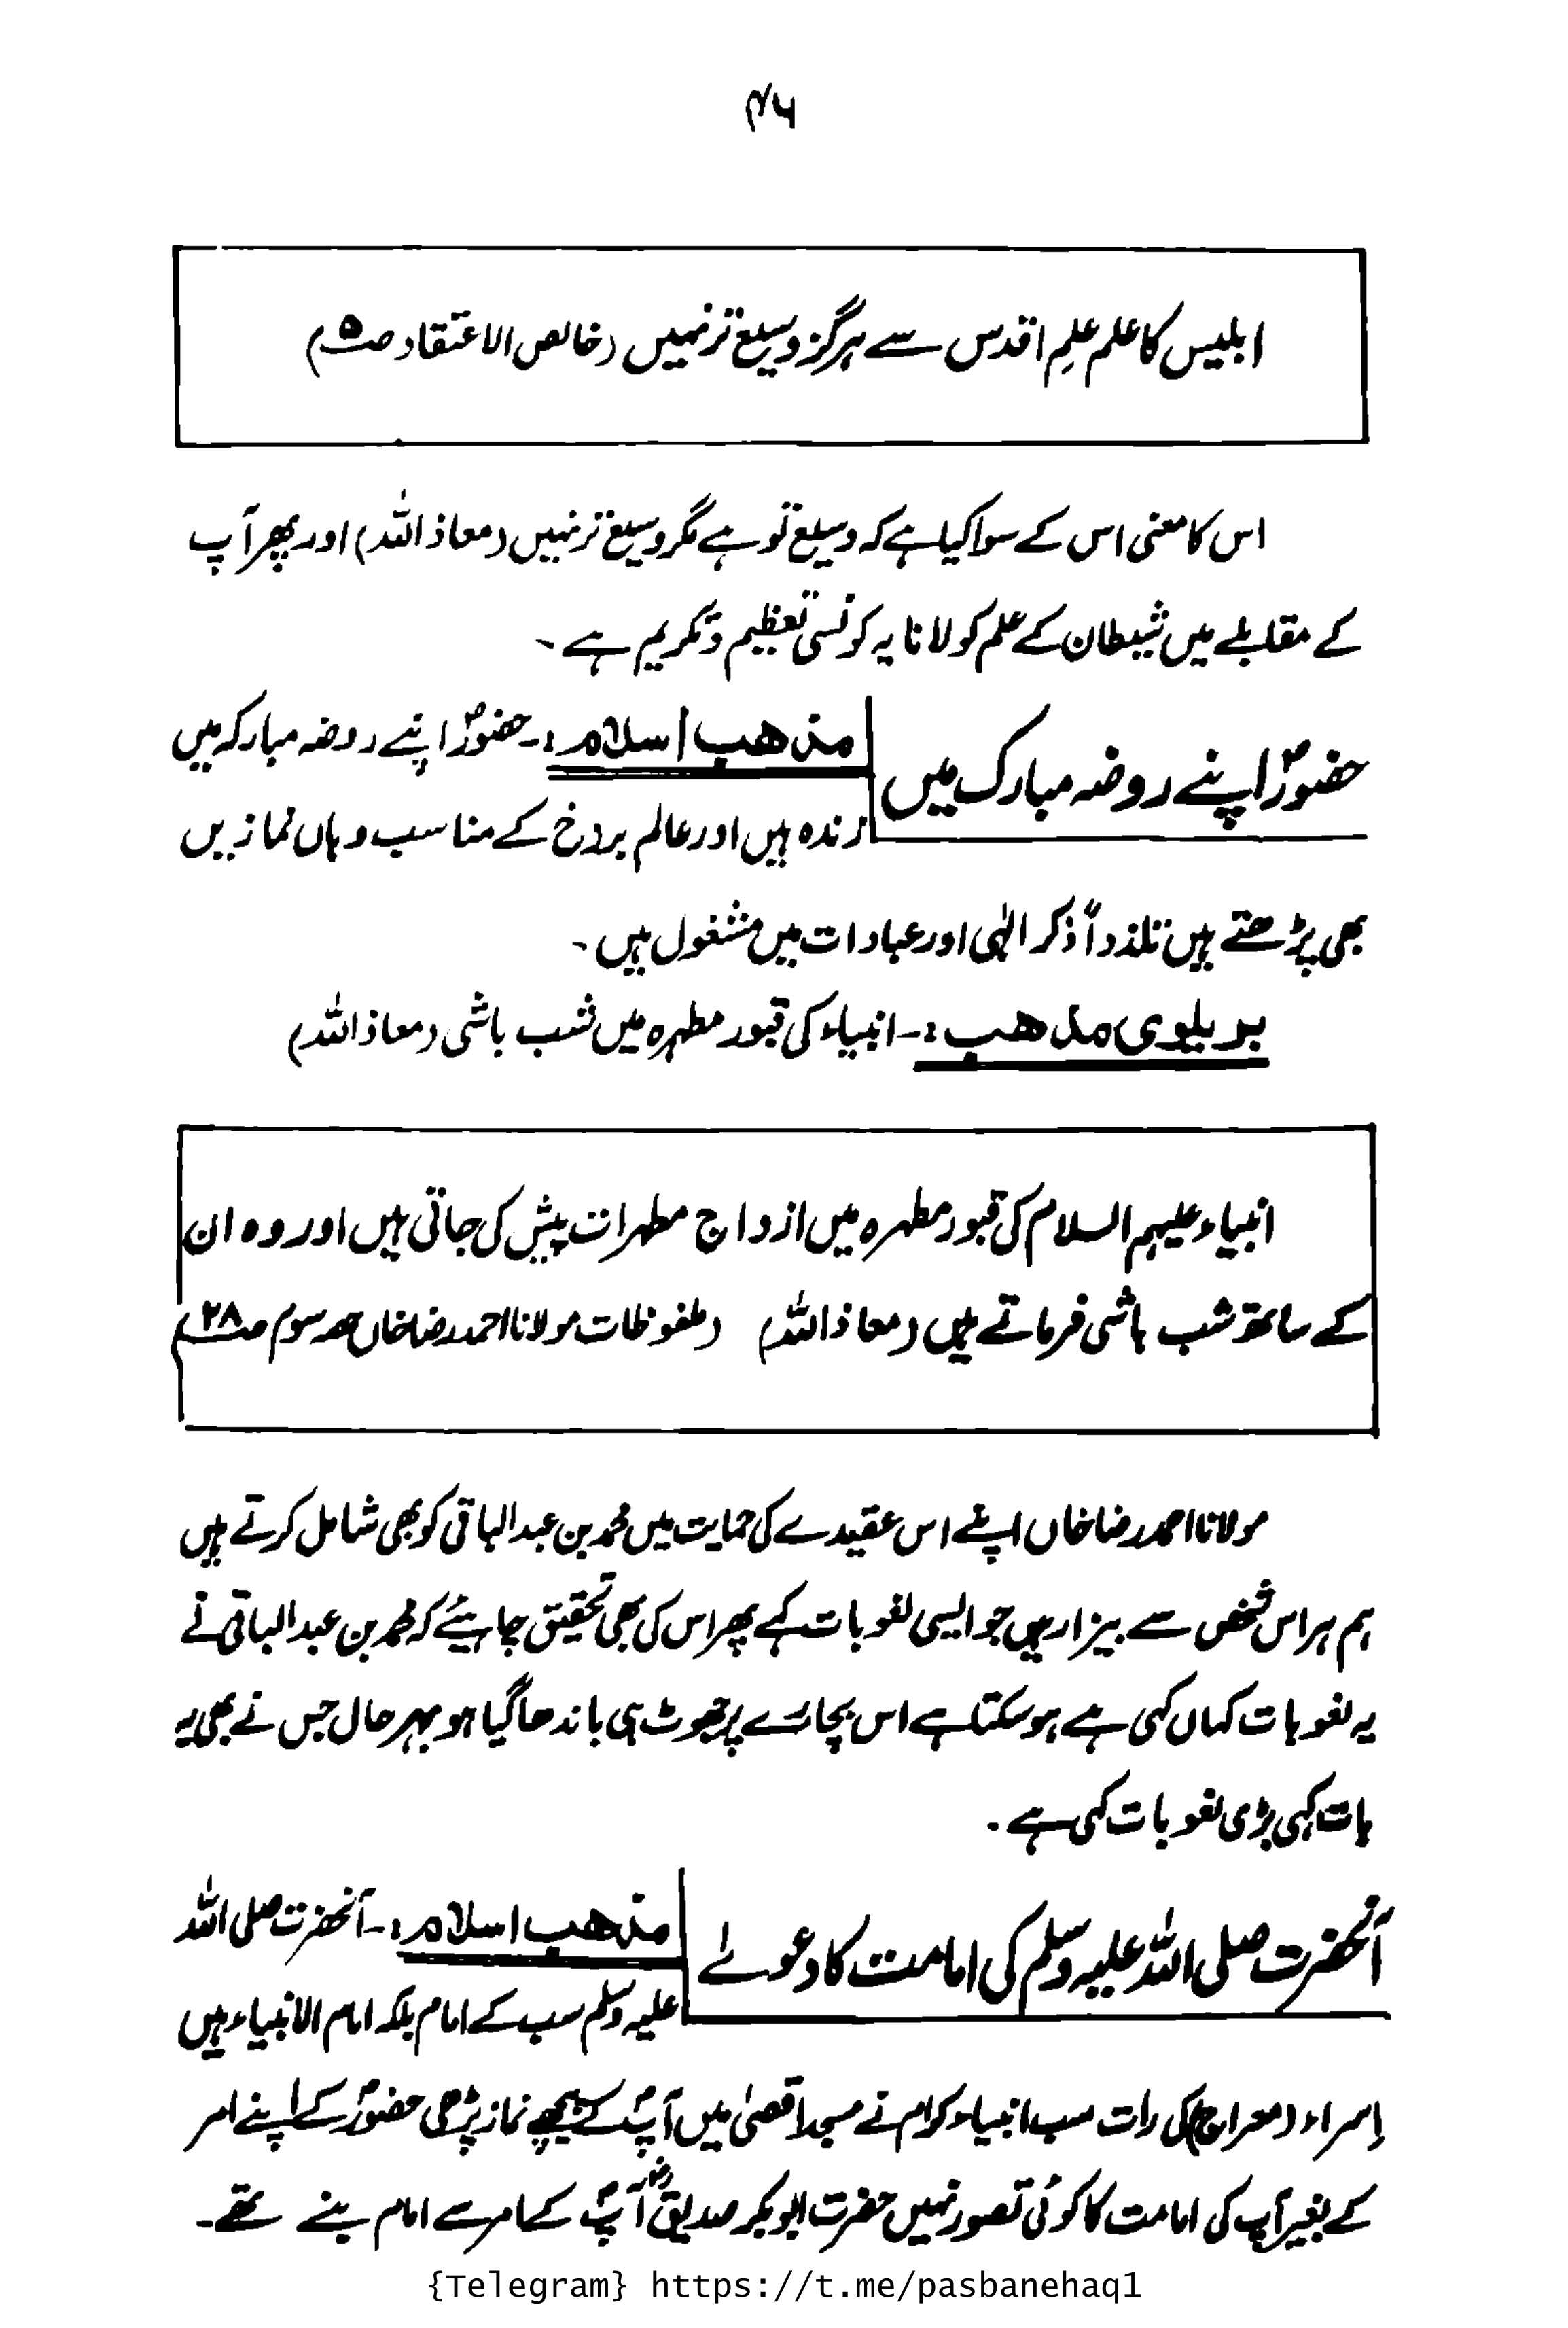 ۴۶
ابلیس کا علم علمِ اقدس سے ہرگز وسیع تر نہیں (خالص الاعتقاد صـ۵)
اس کا معنی اس کے سوا کیا ہے کہ وسیع تو ہے مگر وسیع تر نہیں (معاذ اللہ) اور پھر آپ
کے مقابلے میں شیطان کے علم کو لانا یہ کونسی تعظیم و تکریم ہے۔
حضورؐ اپنے روضہ مبارک میں
مذھب اسلام :- حضورؐ اپنے روضہ مبارکہ میں
زندہ ہیں اور عالم برزخ کے مناسب وہاں نمازیں
بھی پڑھتے ہیں تلذذاً ذکر الٰہی اور عبادات میں مشغول ہیں۔
بریلوی مذھب :- انبیاء کی قبور مطہرہ میں شب باشی (معاذ اللہ)
انبیاء علیہم السلام کی قبور مطہرہ میں ازواج مطہرات پیش کی جاتی ہیں اور وہ ان
کے ساتھ شب باشی فرماتے ہیں (معاذ اللہ) (ملفوظات مولانا احمد رضا خاں حصہ سوم صـ۲۸)
مولانا احمد رضا خاں اپنے اس عقیدے کی حمایت میں محمد بن عبد الباقی کو بھی شامل کرتے ہیں
ہم ہر اس شخص سے بیزار ہیں جو ایسی لغو بات کہے پھر اس کی بھی تحقیق چاہیئے کہ محمد بن عبد الباقی نے
یہ لغو بات کہاں کہی ہے ہو سکتا ہے اس بچارے پر جھوٹ ہی باندھا گیا ہو بہر حال جس نے بھی یہ
بات کہی بڑی لغو بات کہی ہے۔
آنحضرت صلی اللہ علیہ وسلم کی امامت کا دعویٰے
مذھب اسلام :- آنحضرت صلی اللہ
علیہ وسلم سب کے امام بلکہ امام الانبیاء ہیں
اِسراء (معراج) کی رات سب انبیاء کرام نے مسجد اقصیٰ میں آپؐ کے پیچھے نماز پڑھی حضورؐ کے اپنے امر
کے بغیر آپ کی امامت کا کوئی تصور نہیں حضرت ابو بکر صدیقؓ آپؐ کے امر سے امام بنے تھے۔
{Telegram} https://t.me/pasbanehaq1